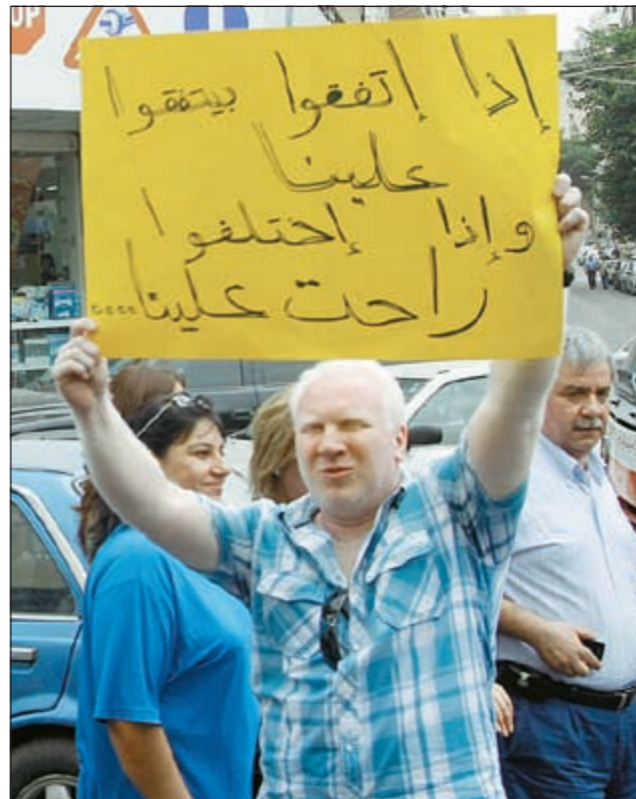 OP
إذا إتفقوا بيتفقوا
علينا
وإذا إختلفوا
راحت علينا....